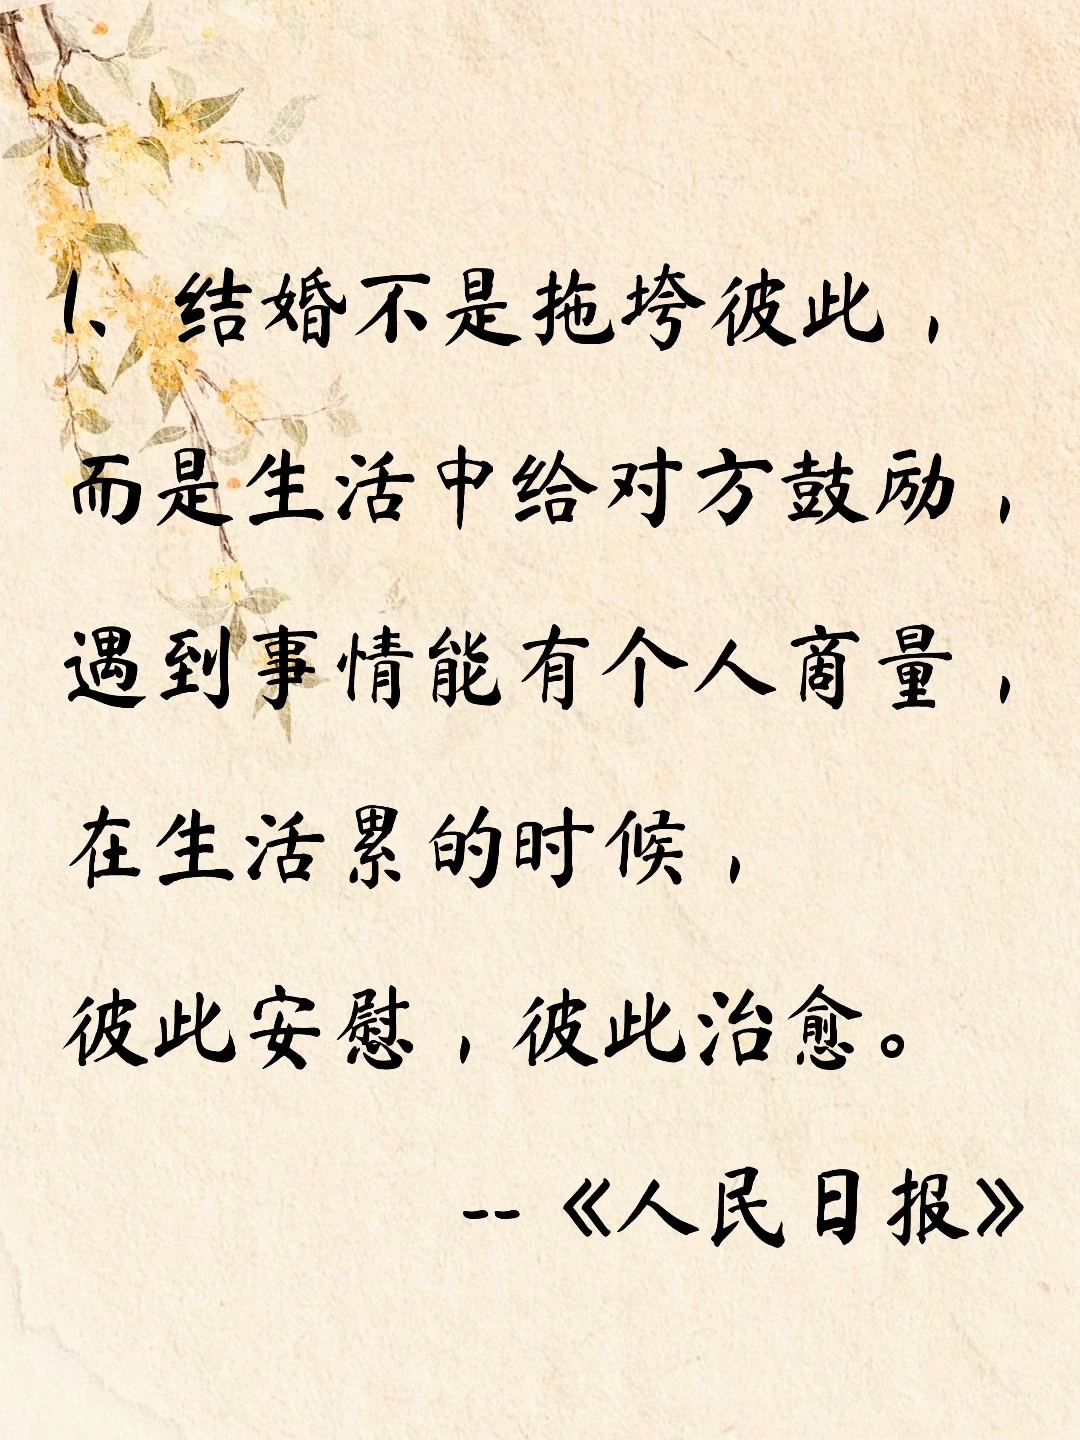 1、结婚不是拖垮彼此，
而是生活中给对方鼓励，
遇到事情能有个人商量，
在生活累的时候，
彼此安慰，彼此治愈。
--《人民日报》